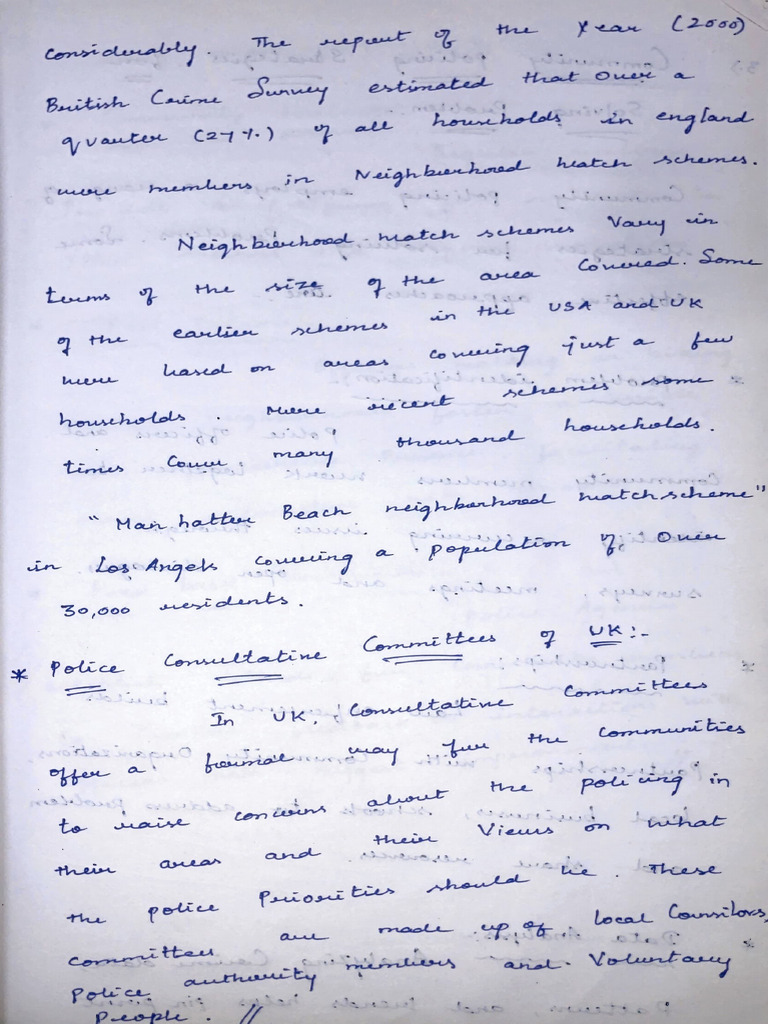 considerably. The report of the Year (2000)
British Crime Survey estimated that over a
quarter (27%) of all households in england
were members in Neighborhood watch schemes.
Neighborhood watch schemes vary in
terms of the size of the area covered. Some
of the earlier schemes in the USA and UK
were based on areas covering just a few
households. More recent schemes some
times cover many thousand households.
"Manhatter Beach neighborhood watch scheme"
in Los Angels covering a population of over
30,000 residents.
* Police Consultative Committees of UK:-
In UK, Consultative Committees
offer a formal way for the communities
to raise concerns about the policing in
their areas and their views on what
the police Priorities should be. These
committees are made up of local Counsilors,
Police authority members and Voluntary
People. //